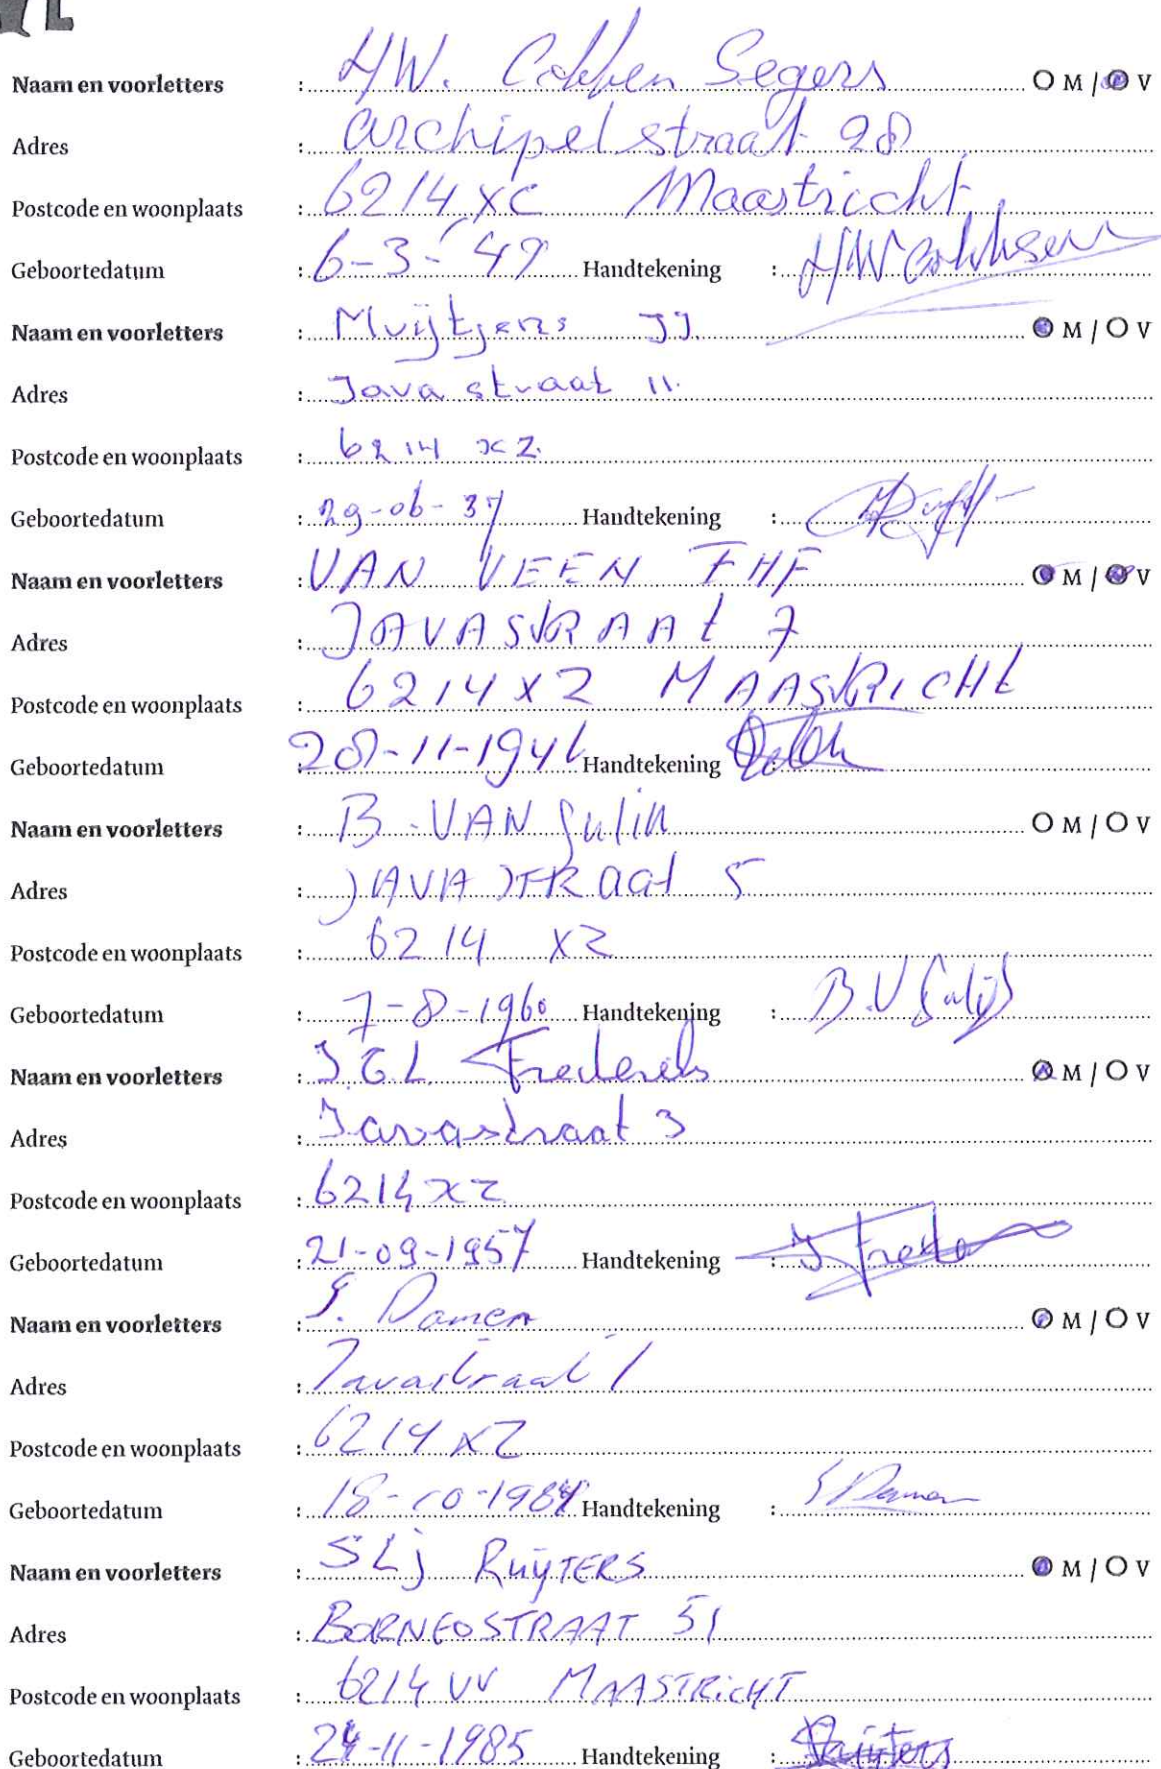 Naam en voorletters : HW. Cobben Segers O M / O V
Adres : Archipelstraat 28
Postcode en woonplaats : 6214 XC Maastricht
Geboortedatum : 6-3-'49 Handtekening :
Naam en voorletters : Muijtjens JJ. O M / O V
Adres : Java straat 11.
Postcode en woonplaats : 6214 XZ.
Geboortedatum : 29-06-37 Handtekening :
Naam en voorletters : VAN VEEN FHF O M / O V
Adres : JAVASTRAAt 7
Postcode en woonplaats : 6214 XZ MAASTRICHt
Geboortedatum : 28-11-1946 Handtekening :
Naam en voorletters : B. VAN Gulik O M / O V
Adres : JAVASTRaat 5
Postcode en woonplaats : 6214 XZ
Geboortedatum : 7-8-1960 Handtekening : B.V
Naam en voorletters : Frederiks O M / O V
Adres : Javastraat 3
Postcode en woonplaats : 6214 XZ
Geboortedatum : 21-09-1957 Handtekening :
Naam en voorletters : Damen O M / O V
Adres : Javastraat 1
Postcode en woonplaats : 6214 XZ
Geboortedatum : 18-10-1984 Handtekening : Damen
Naam en voorletters : SLj RuijTERS O M / O V
Adres : BORNEOSTRAAT 51
Postcode en woonplaats : 6214 VV MAASTRICHT
Geboortedatum : 24-11-1985 Handtekening : Ruijters